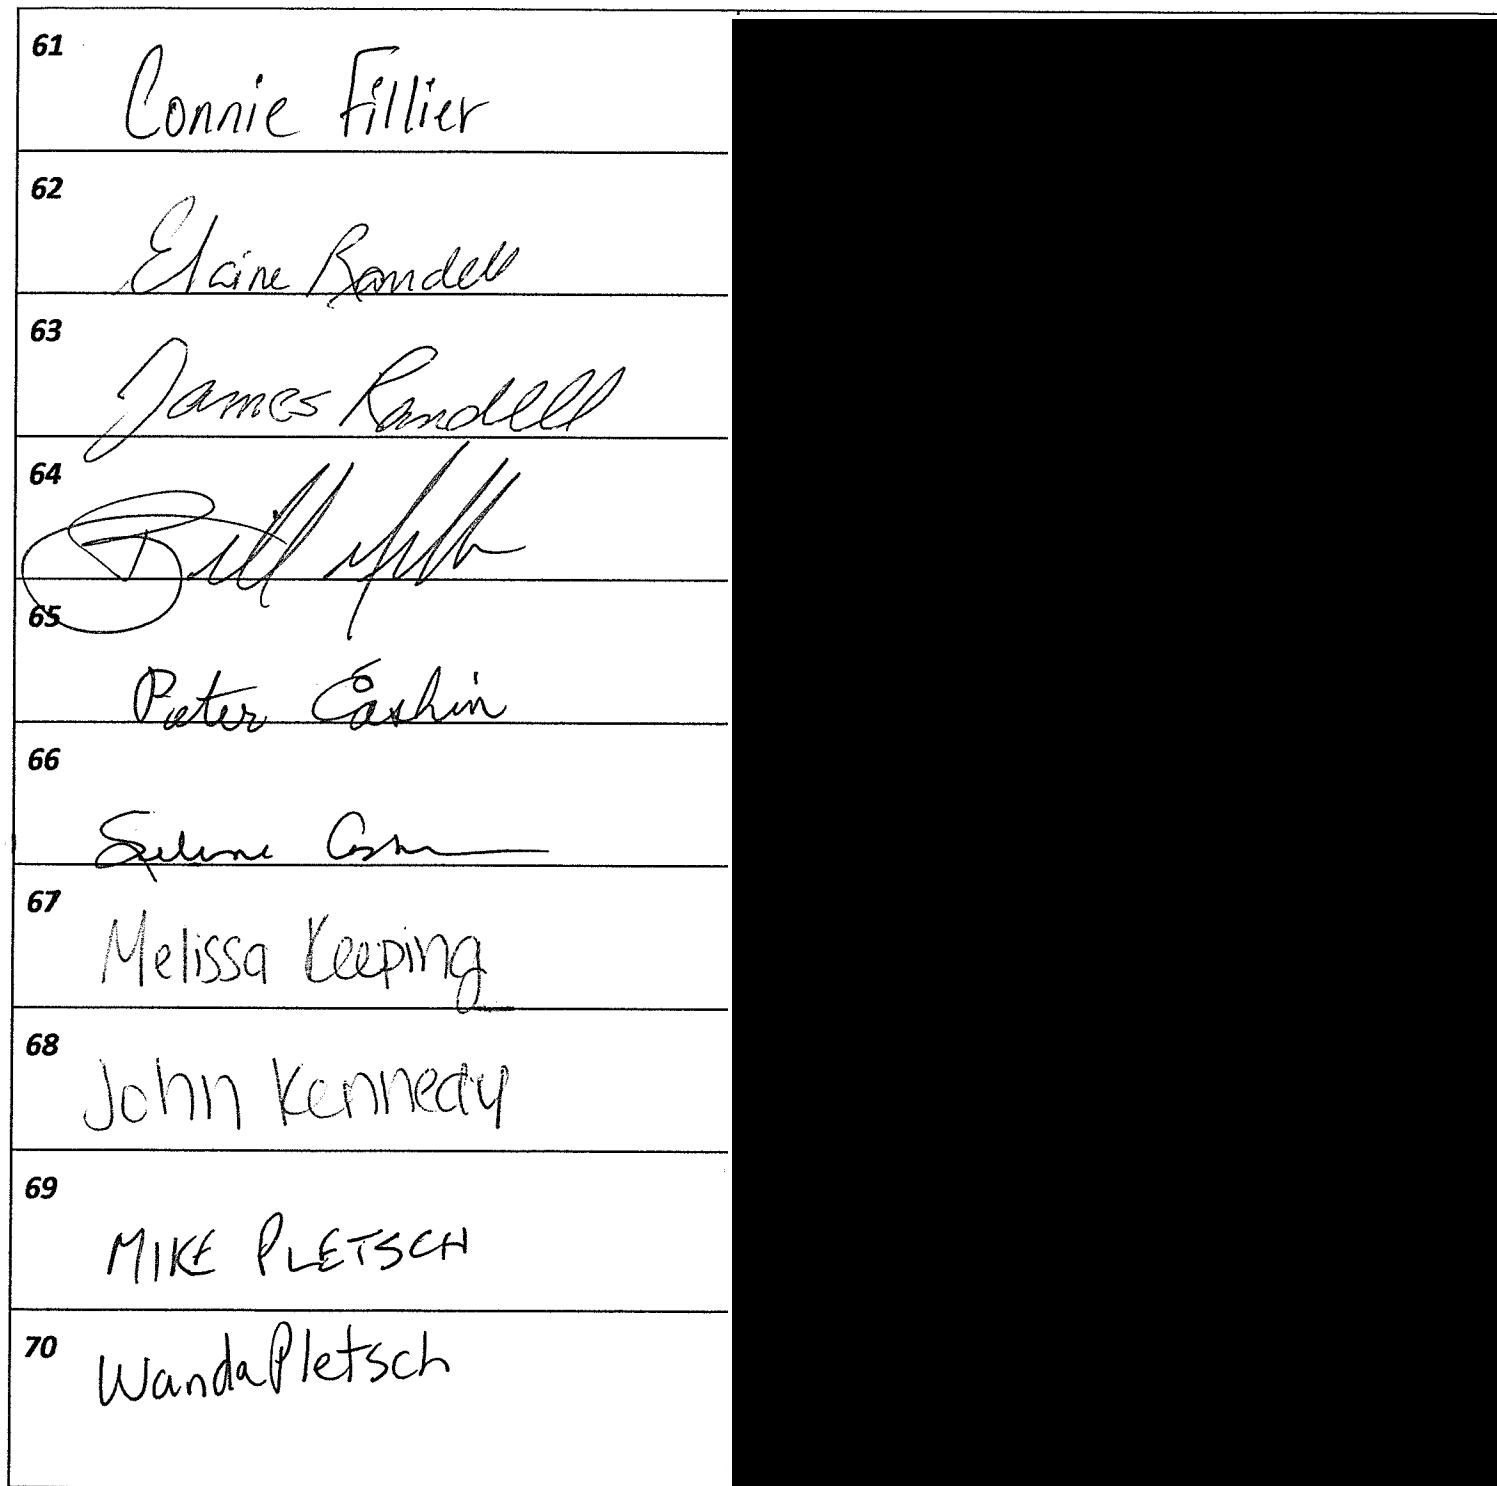 61
Connie Fillier
62
Elaine Randell
63
James Randell
64
Bill
65
Peter Cashin
66
67
Melissa Keeping
68
John Kennedy
69
MIKE PLETSCH
70
Wanda Pletsch